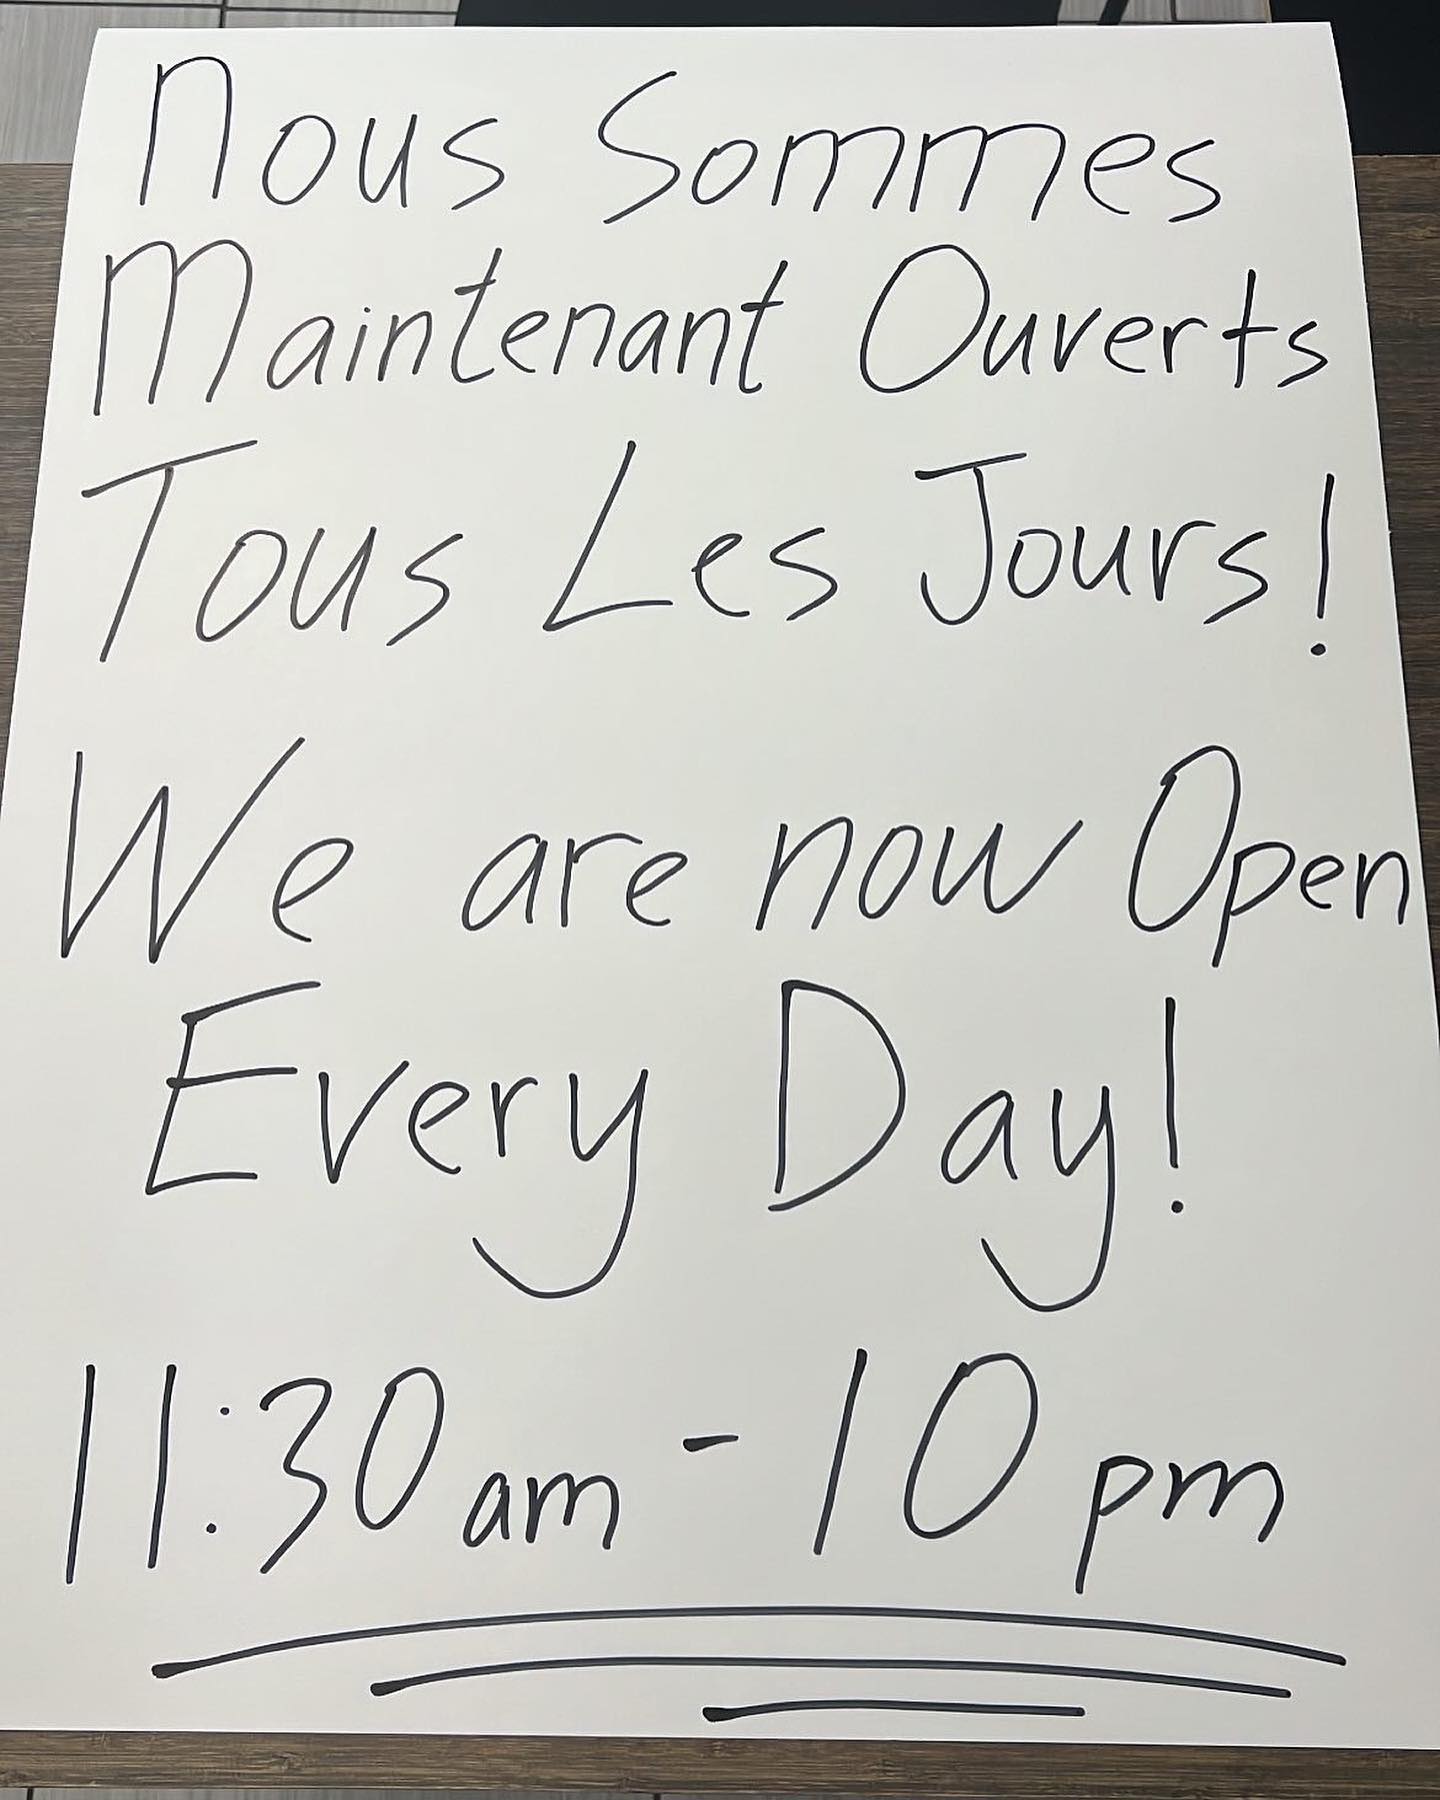 Nous Sommes
Maintenant Ouverts
Tous Les Jours!
We are now Open
Every Day!
11:30am - 10pm